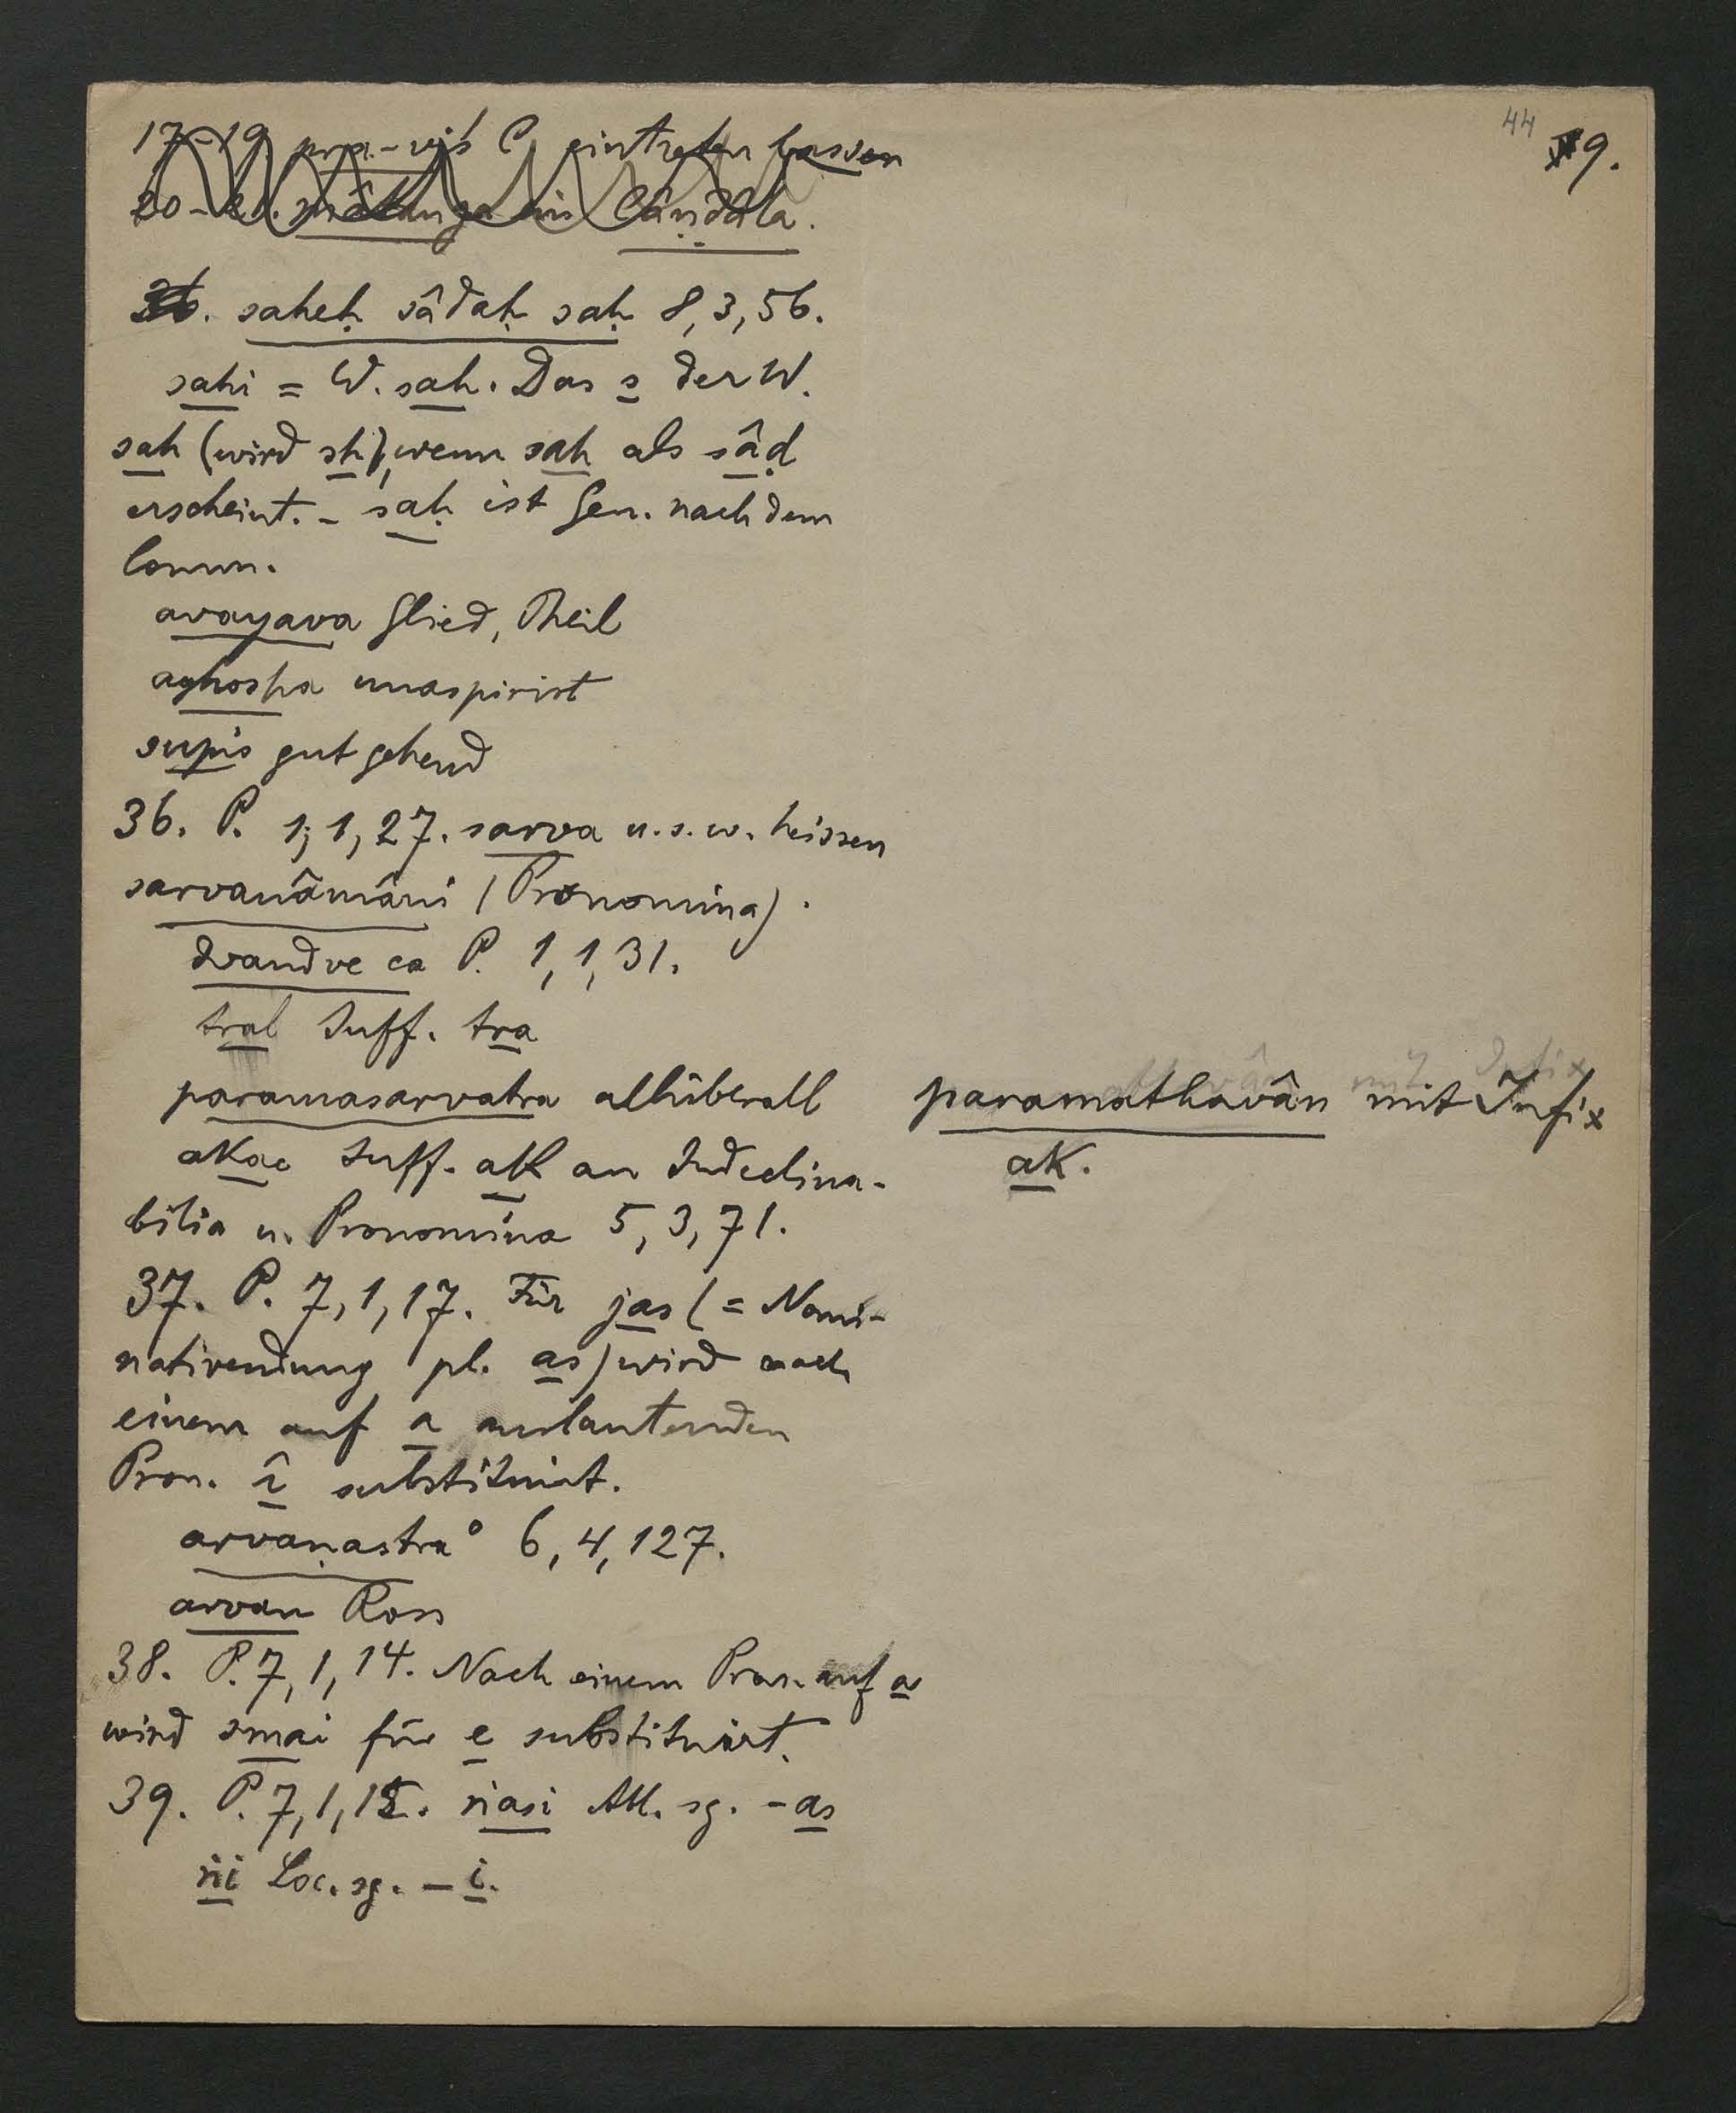 44 9.
17-19. pra-viś C. eintreten lassen
20-21. mâtanga ein Cânḍâla.
36. saheḥ sâdaḥ saḥ 8, 3, 56.
sahi = W. sah. Das s der W.
sah (wird sh), wenn sah als sâḍ
erscheint. - saḥ ist Gen. nach dem
Comm.
avayava Glied, Theil
aghosha unaspirirt
supis gut gehend
36. P. 1, 1, 27. sarva u.s.w. heissen
sarvanâmâni (Pronomina).
dvandve ca P. 1, 1, 31.
tral Suff. tra
paramasarvatra allüberall
paramathavân mit Infix
akac Suff. ak an Indeclina-
ak.
bilia u. Pronomina 5, 3, 71.
37. P. 7, 1, 17. Für jas (= Nomi-
nativendung pl. as) wird nach
einem auf a auslautenden
Pron. î substituirt.
arvaṇastra° 6, 4, 127.
arvan Ross
38. P. 7, 1, 14. Nach einem Pron. auf a
wird smai für e substituirt.
39. P. 7, 1, 15. ṅasi Abl. sg. - as
ṅi Loc. sg. - i.